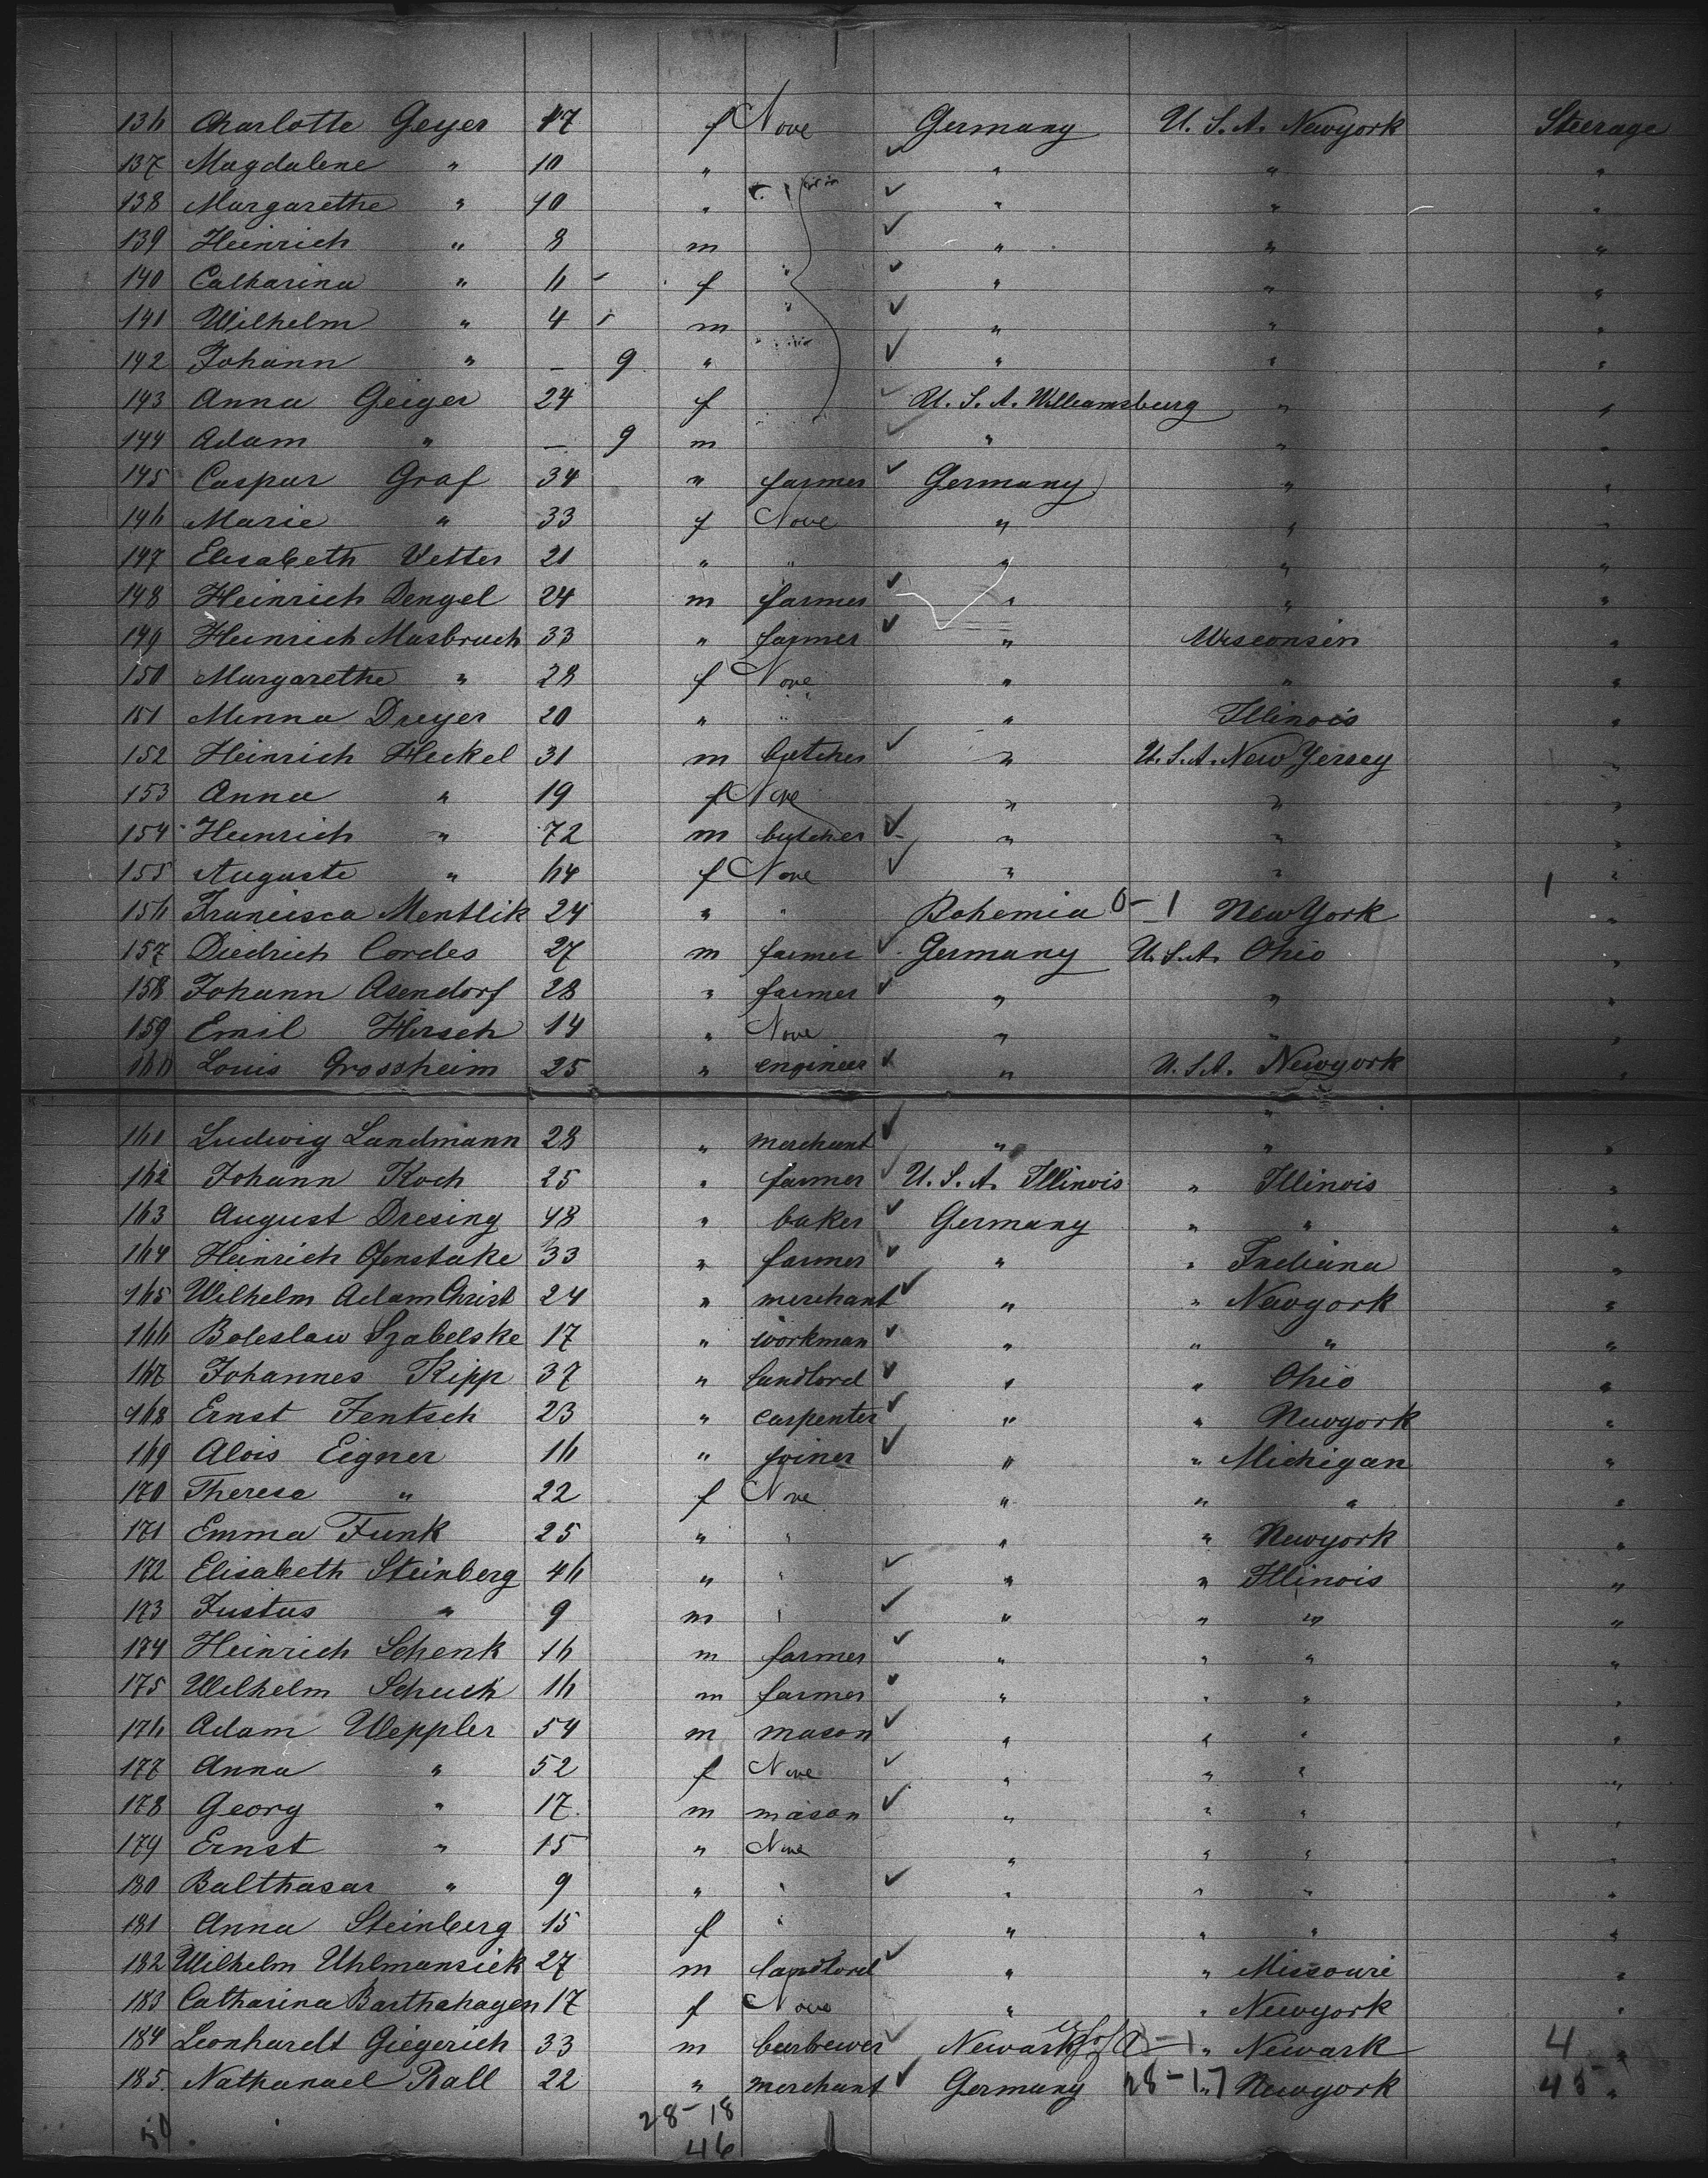 136 Charlotte Geyer 47 f None Germany U. S. A. Newyork Steerage
137 Magdalene " 10 " " " "
138 Margarethe " 10 " " " "
139 Heinrich " 8 m " " "
140 Catharina " 6 f " " " "
141 Wilhelm " 4 m " " " "
142 Johann " — 9 " " " "
143 Anna Geiger 24 f U. S. A. Williamsburg " "
144 Adam " — 9 m " " "
145 Caspar Graf 34 " farmer Germany " "
146 Marie " 33 f None " " "
147 Elisabeth Vetter 21 " " " " "
148 Heinrich Dengel 24 m farmer " " "
149 Heinrich Masbruch 33 " farmer " Wisconsin "
150 Margarethe " 28 f None " " "
151 Minna Dreyer 20 " " " Illinois "
152 Heinrich Heckel 31 m butcher " U. S. A. New Jersey "
153 Anna " 19 f None " " "
154 Heinrich " 72 m butcher " " "
155 Auguste " 64 f None " " "
156 Francisca Mentlik 24 " " Bohemia 0-1 New York 1 "
157 Diedrich Cordes 27 m farmer Germany U. S. A. Ohio "
158 Johann Asendorf 28 " farmer " " "
159 Emil Hirsch 14 " None " " "
160 Louis Grossheim 25 " engineer " U. S. A. Newyork "
161 Ludwig Landmann 28 " merchant " " "
162 Johann Koch 25 " farmer U. S. A. Illinois " Illinois "
163 August Dresing 48 " baker Germany " " "
164 Heinrich Ofenstake 33 " farmer " " Indiana "
165 Wilhelm Adam Christ 24 " merchant " " Newyork "
166 Boleslaw Szabelske 17 " workman " " " "
167 Johannes Ripp 37 " landlord " " Ohio "
168 Ernst Fentsch 23 " carpenter " " Newyork "
169 Alois Eigner 16 " joiner " " Michigan "
170 Therese " 22 f None " " " "
171 Emma Funk 25 " " " " Newyork "
172 Elisabeth Steinberg 46 " " " " Illinois "
173 Justus " 9 m " " " " "
174 Heinrich Schenk 16 m farmer " " " "
175 Wilhelm Schuch 16 m farmer " " " "
176 Adam Weppler 54 m mason " " " "
177 Anna " 52 f None " " " "
178 Georg " 17 m mason " " " "
179 Ernst " 15 " None " " " "
180 Balthasar " 9 " " " " " "
181 Anna Steinberg 15 f " " " " "
182 Wilhelm Uhlmansiek 27 m landlord " " Missouri "
183 Catharina Barthahagen 17 f None " " Newyork "
184 Leonhardt Giegerich 33 m beerbrewer Newark " Newark 4 "
185. Nathanael Ball 22 " merchant Germany 28-17 " Newyork 45 "
50 28-18
46